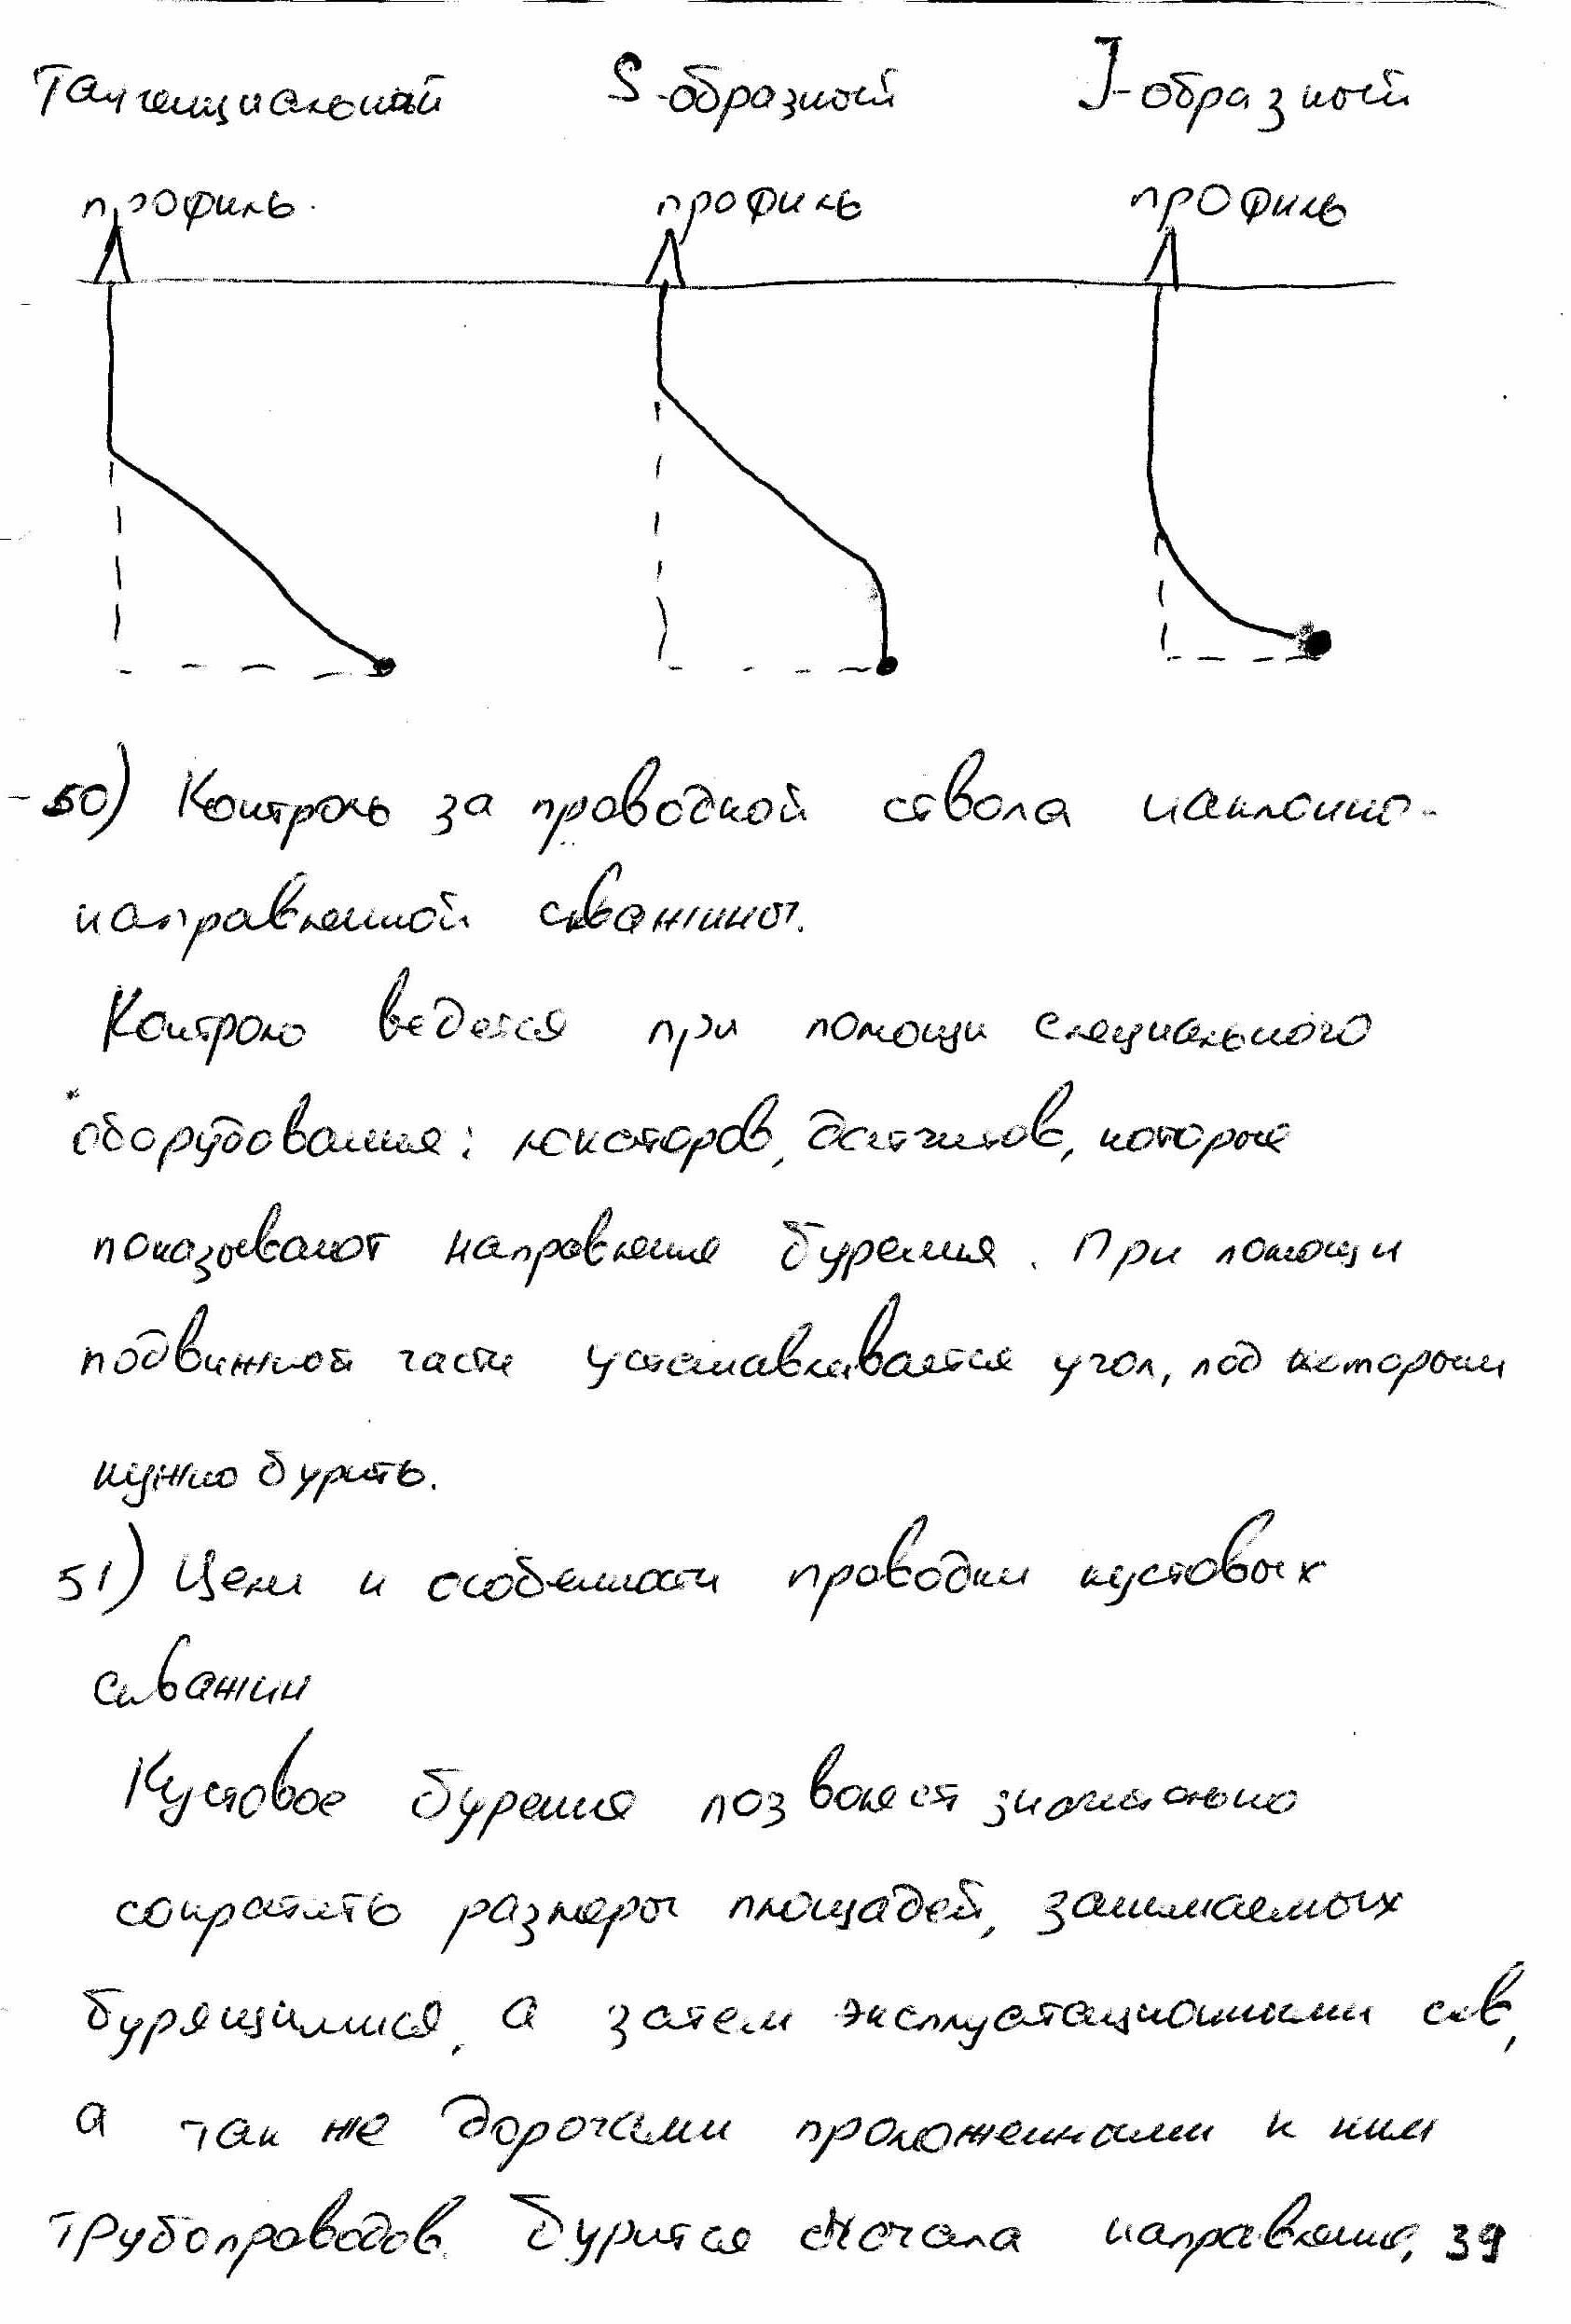 Тангенциальный S-образный J-образный
профиль профиль профиль
50) Контроль за проводкой ствола наклонно-
направленной скважины.
Контроль ведется при помощи специального
оборудования: , датчиков, которые
показывают направление бурения. При помощи
подвижной части устанавливается угол, под которым
нужно бурить.
51) Цели и особенности проводки кустовых
скважин
Кустовое бурение позволяет значительно
сократить размеры площадей, занимаемых
бурящимися, а затем эксплуатационными скв,
а так же дорогами проложенными к ним
трубопроводов. Бурится сначала направление, 39